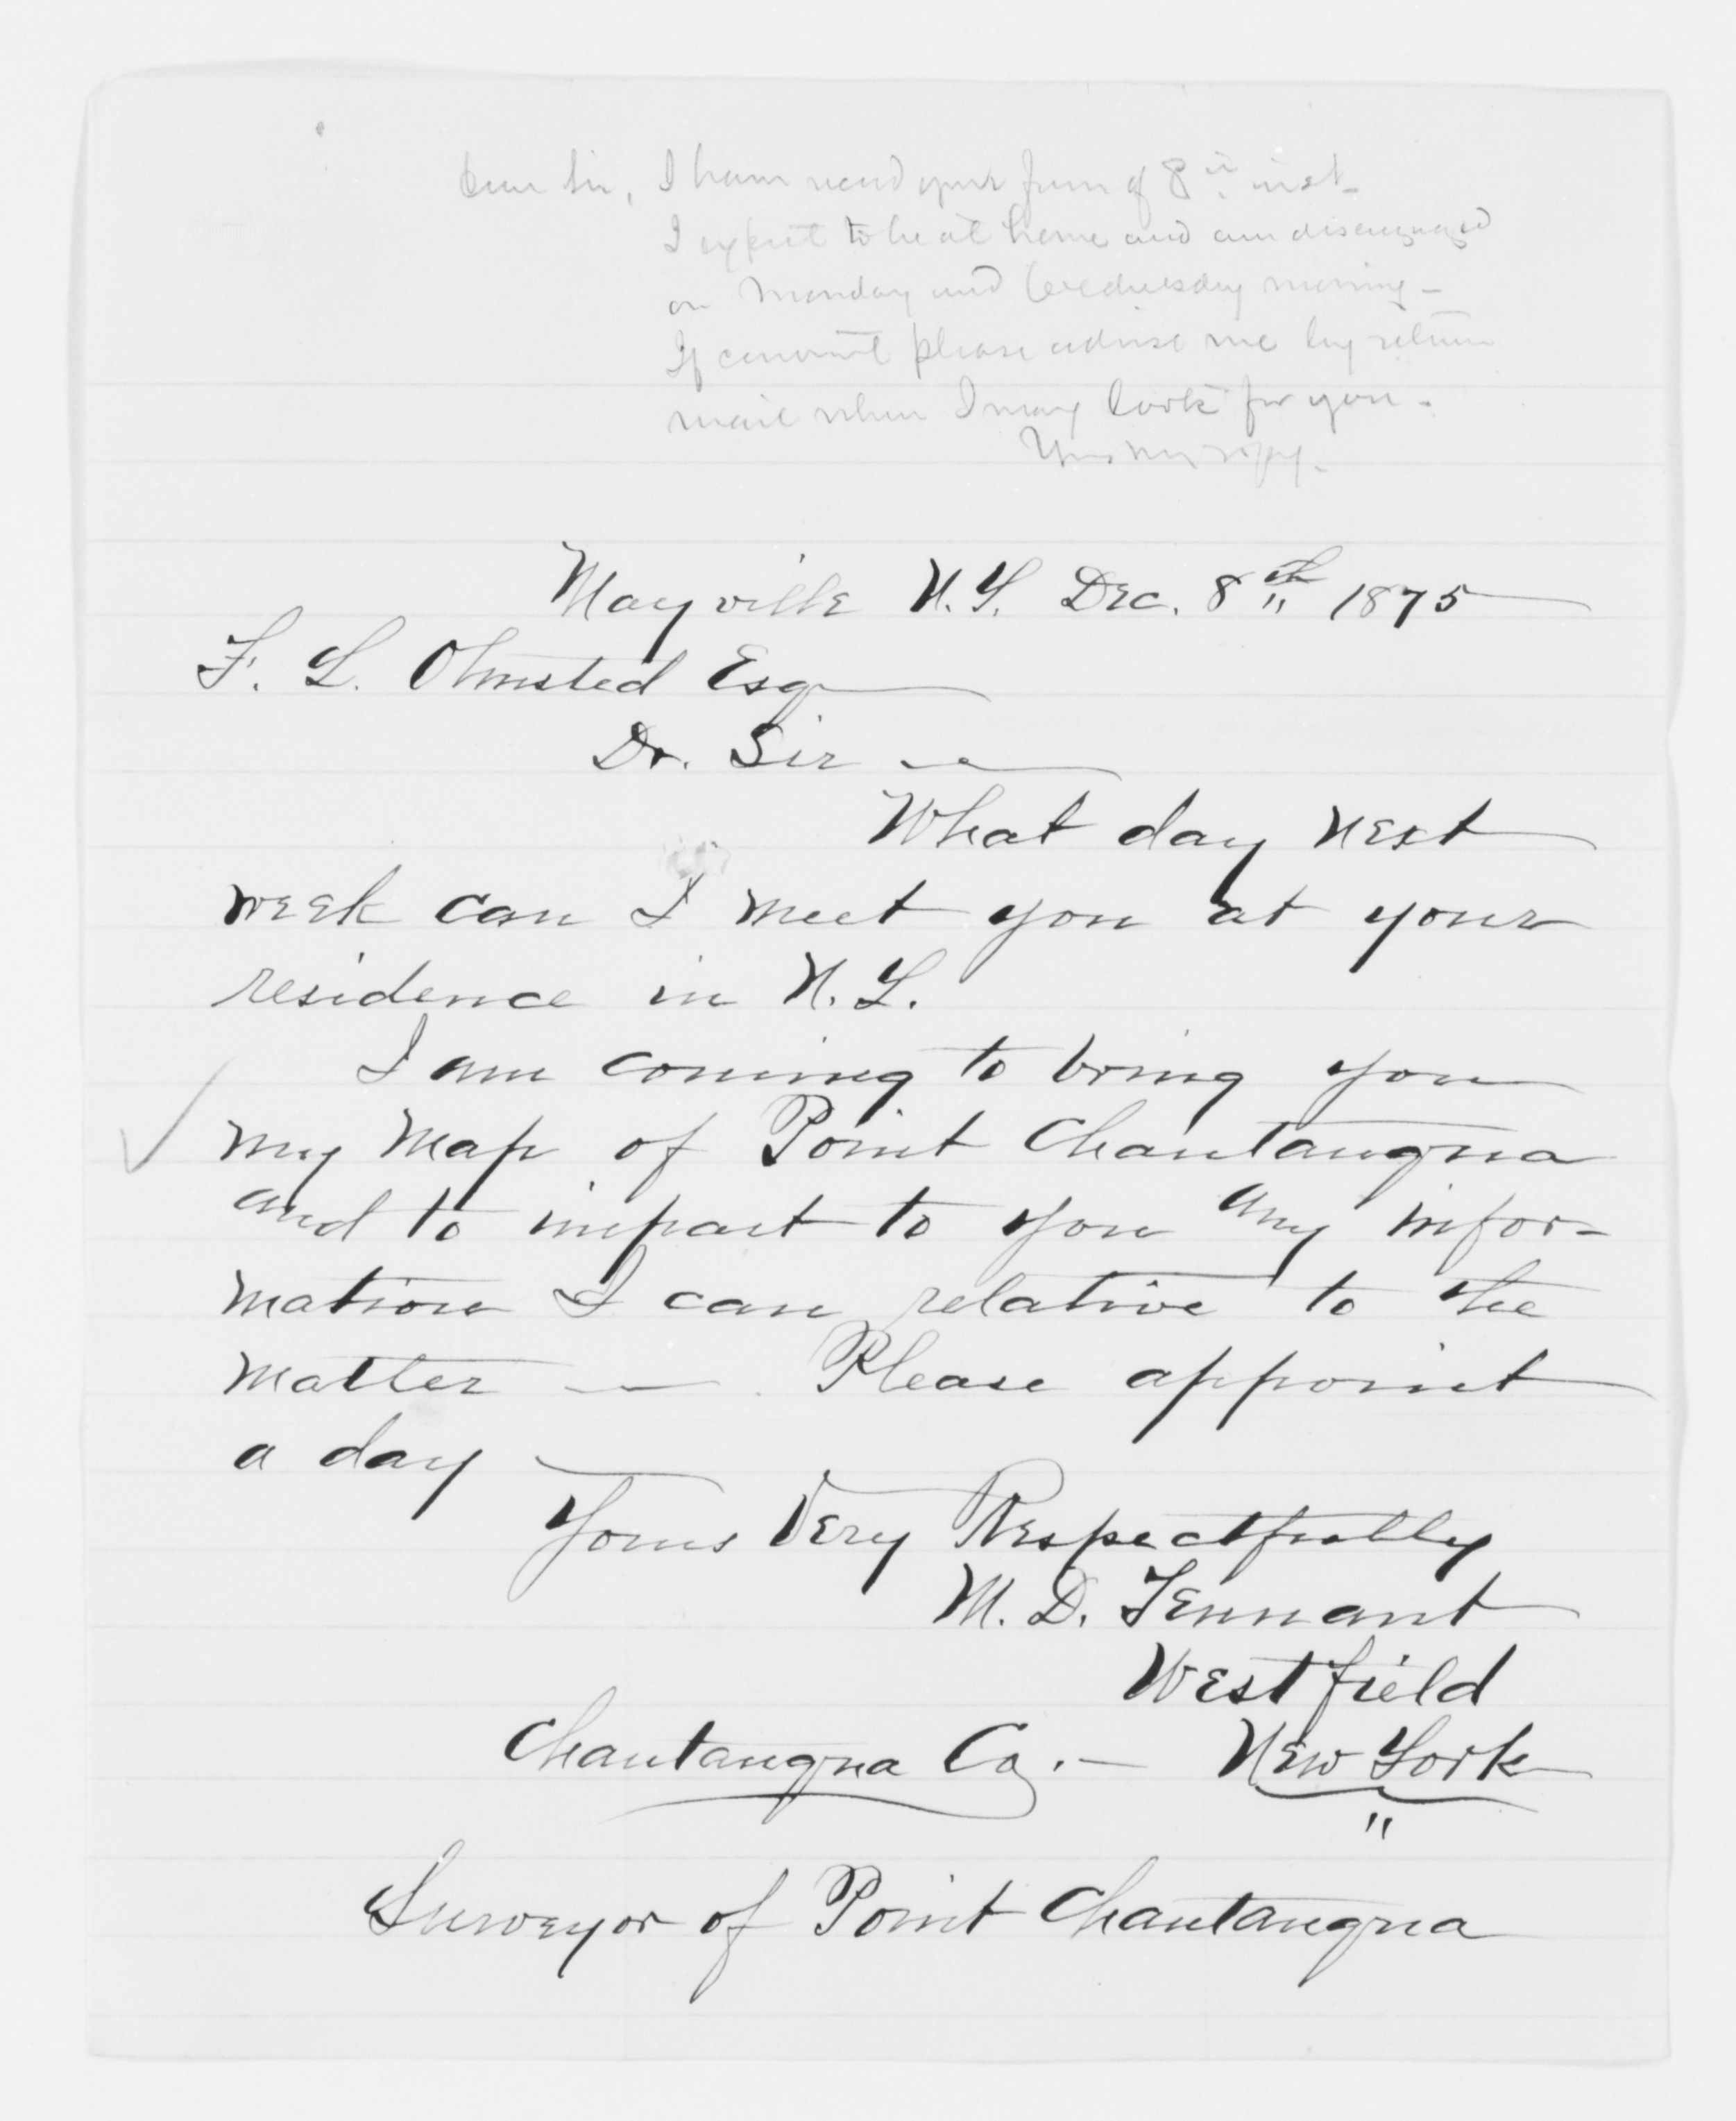 Dear Sir, I have recd your favor of 8th inst.
I expect to be at home and am disengaged
on Monday and Wednesday morning -
If convint please advise me by return
mail when I may look for you -
Yours
Mayville N.Y. Dec. 8th 1875
F. L. Olmsted Esq
Dr. Sir
What day next
week can I meet you at your
residence in N.Y.
I am coming to bring you
my map of Point Chautauqua
and to impart to you any infor-
mation I can relative to the
matter — Please appoint
a day
Yours Very Respectfully
M. D. Tennant
Westfield
Chautauqua Co. — New York
"
Surveyor of Point Chautauqua